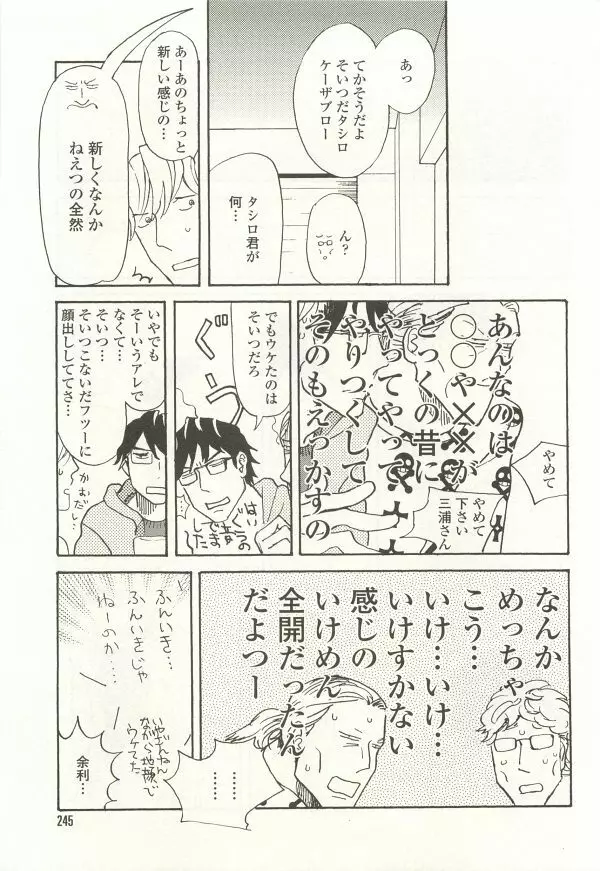 あっ
てかそうだよ
そいつだタシロ
ケーザブロー
ん?
タシロ君が
何…
あーあのちょっと
新しい感じの…
新しくなんか
ねえっつの全然
あんなのは
○○や××が
とっくの昔に
やってやって
やりつくして
そのもえっかすの
やめて
やめて
下さい
三浦さん
でもウケたのは
そいつだろ
ぐうっ
はい
ぐうの
音
でました
いやでも
そーいうアレで
なくて…
そいつ…
そいつこないだフツーに
顔出ししててさ…
かおだし…
なんか
めっちゃ
こう…
いけ…いけ…
いけすかない
感じの
いけめん
全開だったん
だよつー
………
………
ふんいき…
ふんいきじゃ
ねーのか…
いやざんねん
ながら地顔で
ウケてた
余利…
245